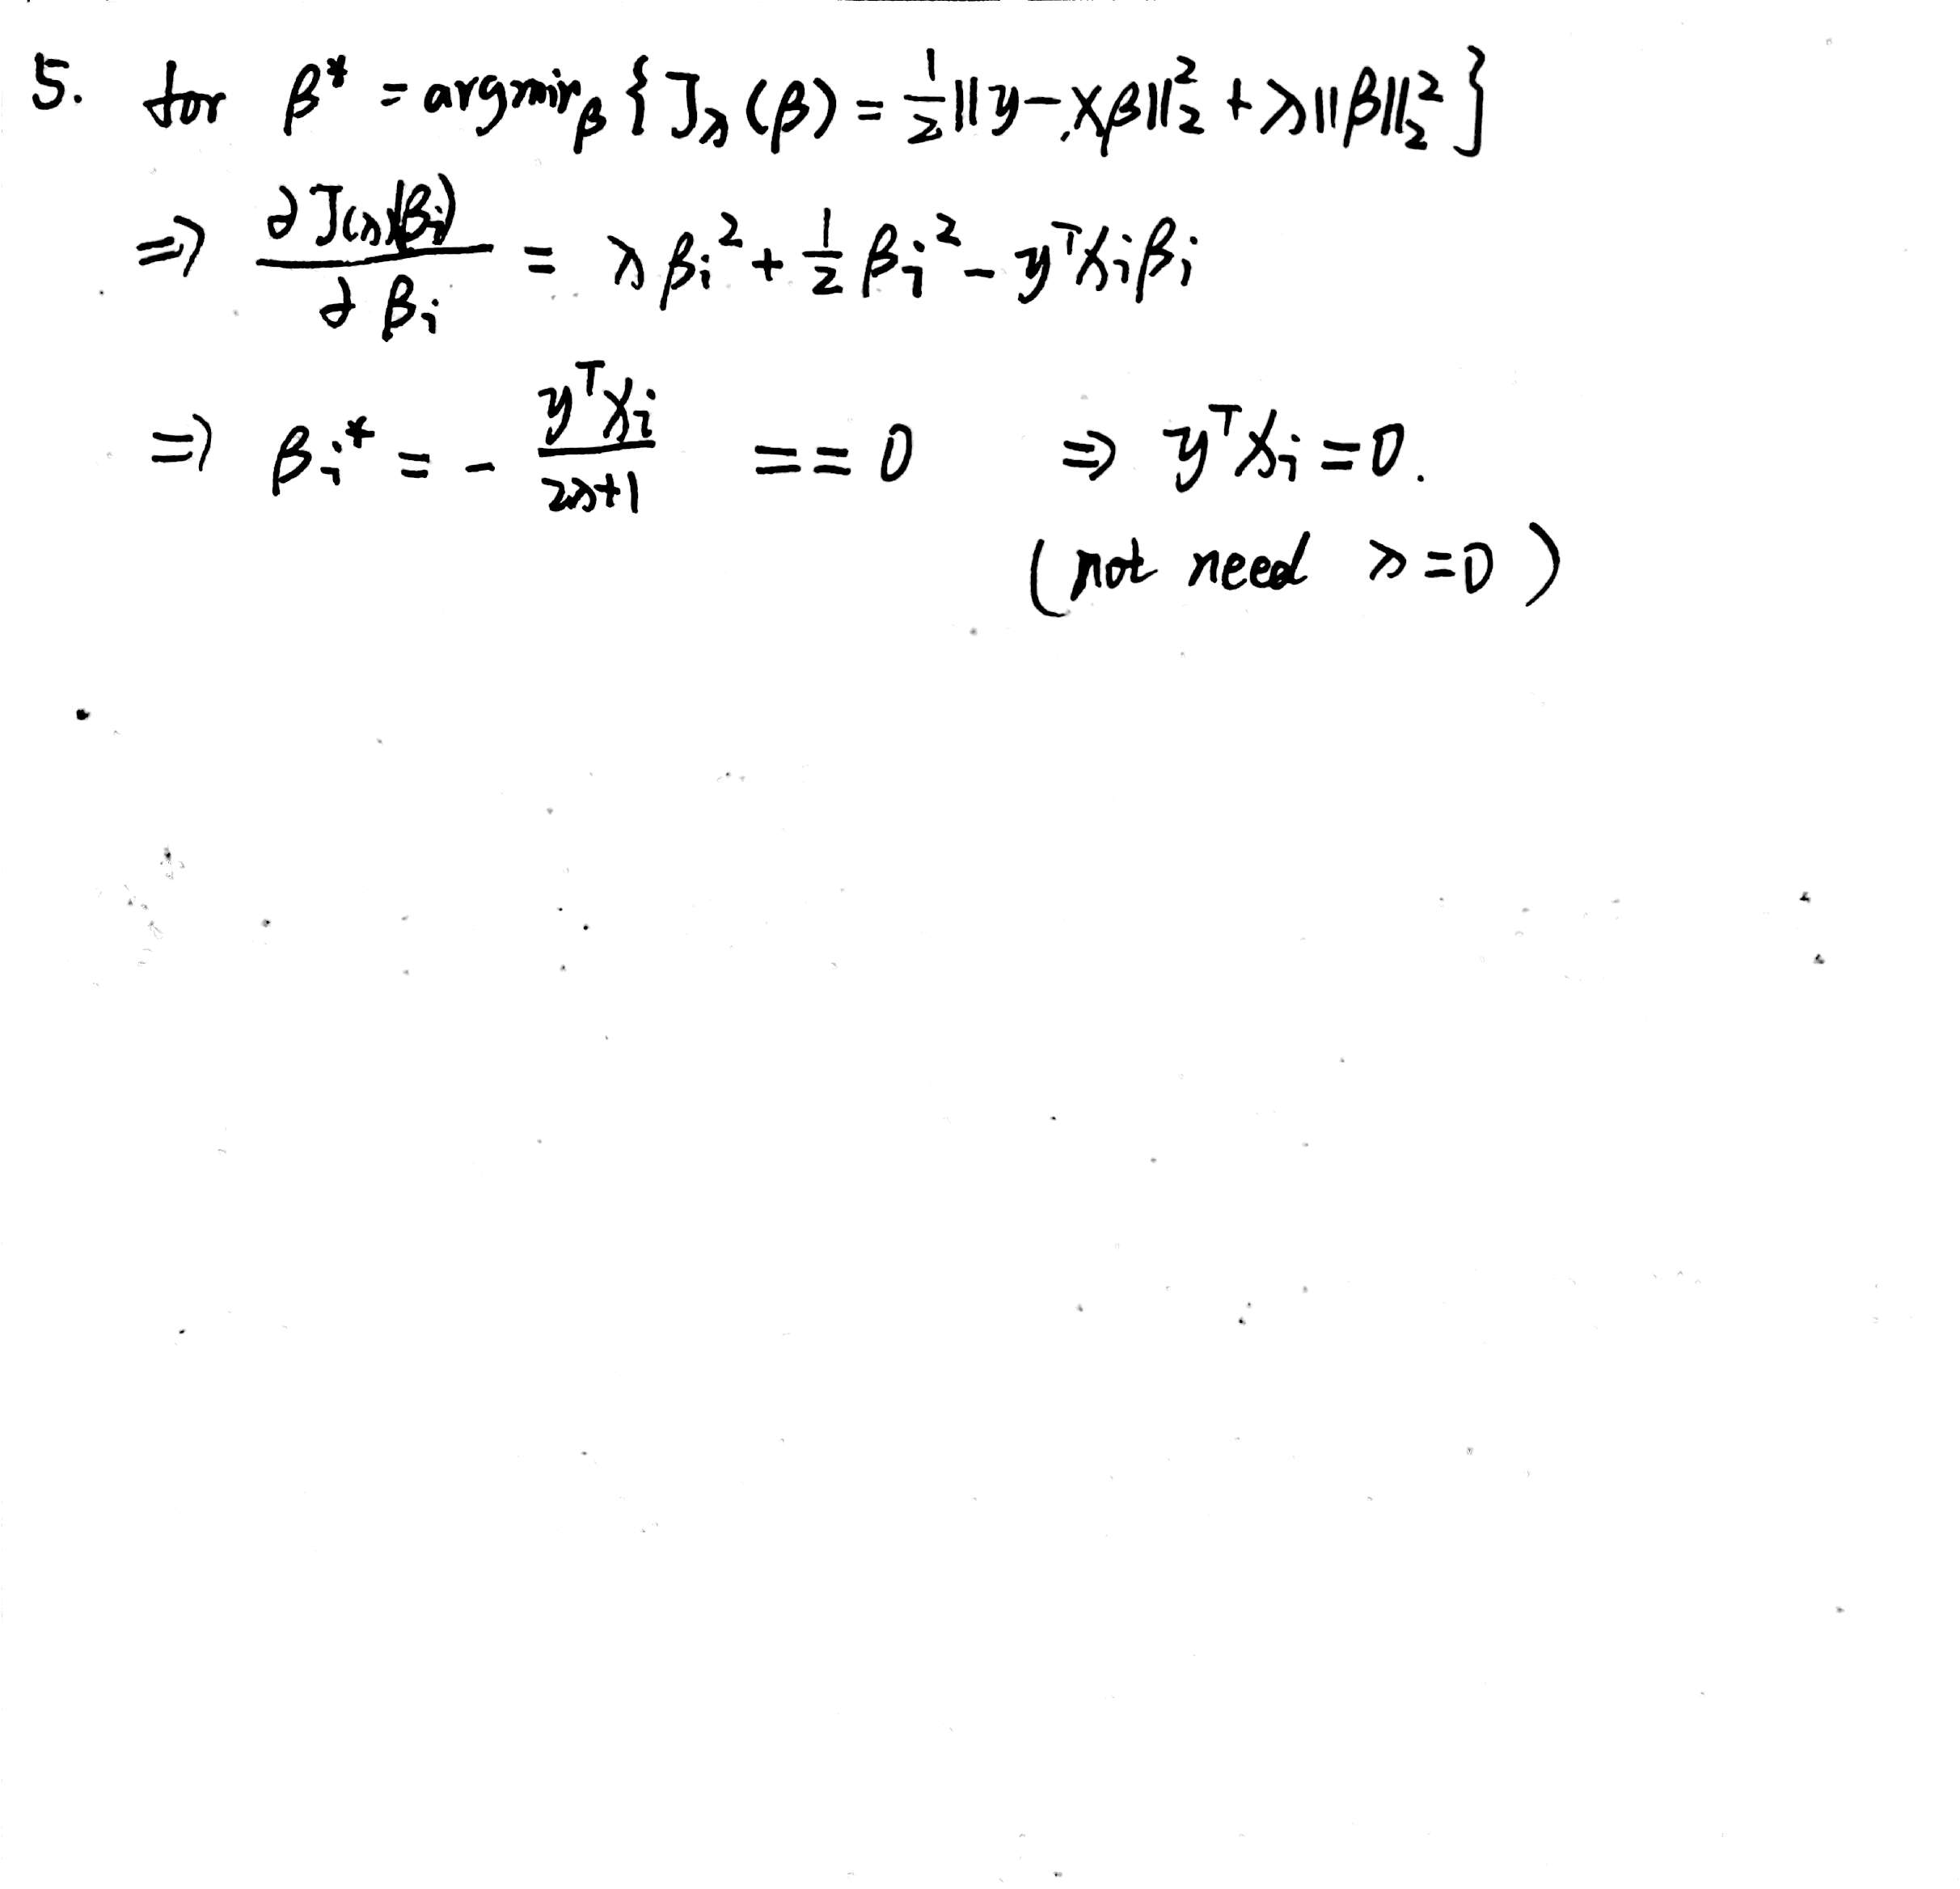 5. for β* = argmin_β { J_λ(β) = 1/2 ||y - Xβ||₂² + λ||β||₂² }
⇒ ∂J(λ)(β_i) / ∂β_i = λβ_i² + 1/2 β_i² - y^T x_i β_i
⇒ β_i* = - y^T x_i / (2λ+1) == 0 ⇒ y^T x_i = 0.
(not need λ=0)